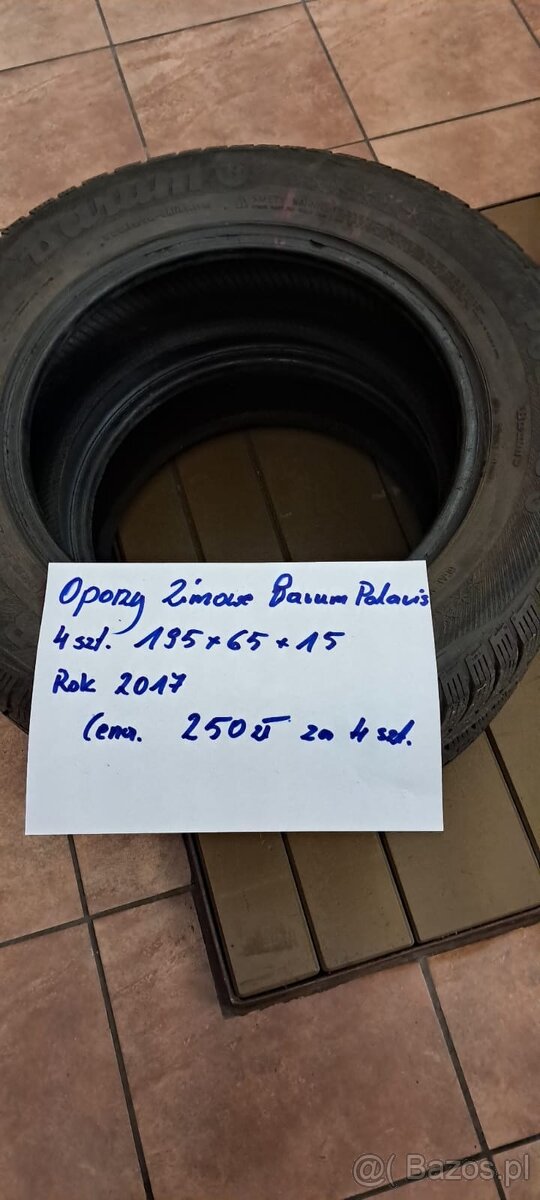 Barum
Opony Zimowe Barum Polaris
4 szt. 195 x 65 x 15
Rok 2017
Cena. 250 zł za 4 szt.
@( Bazos.pl